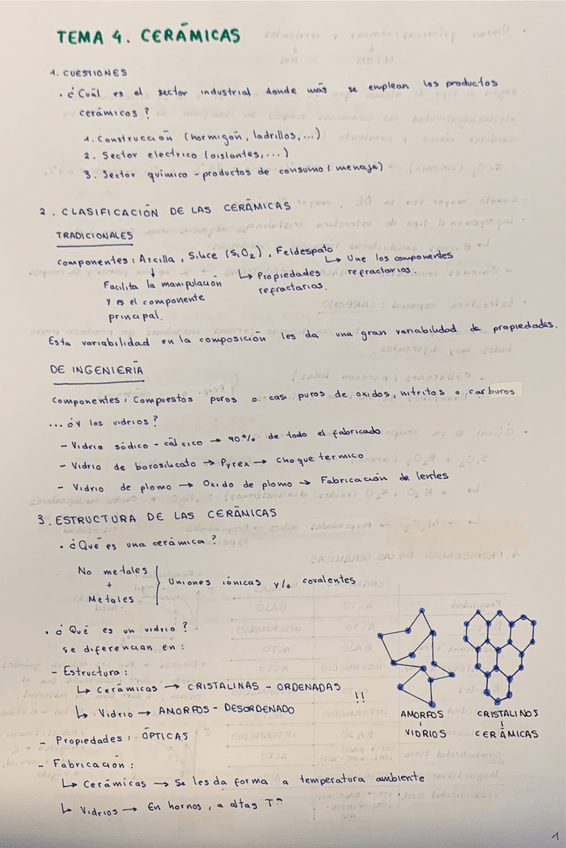 TEMA 4. CERÁMICAS
1. CUESTIONES
• ¿Cuál es el sector industrial donde más se emplean los productos
cerámicos?
1. Construcción (hormigón, ladrillos,...)
2. Sector electrico (aislantes,...)
3. Sector químico - productos de consumo (menaje)
2. CLASIFICACIÓN DE LAS CERÁMICAS
TRADICIONALES
Componentes: Arcilla, Silice (SiO2), Feldespato
↳ Une los componentes
refractarios.
↳ Propiedades
refractarias.
↓
Facilita la manipulación
y es el componente
principal.
Esta variabilidad en la composición les da una gran variabilidad de propiedades.
DE INGENIERÍA
Componentes: Compuestos puros o casi puros de oxidos, nitritos o carburos
... ¿y los vidrios?
- Vidrio sódico - cálcico → 90% de todo el fabricado
- Vidrio de borosilicato → Pyrex → Choque termico
- Vidrio de plomo → Oxido de plomo → Fabricación de lentes
3. ESTRUCTURA DE LAS CERÁNICAS
• ¿Qué es una cerámica?
No metales
+
Metales
} Uniones iónicas y/o covalentes
• ¿Qué es un vidrio?
se diferencian en:
- Estructura:
↳ Cerámicos → CRISTALINAS - ORDENADAS
↳ Vidrio → AMORFOS - DESORDENADO
!!
AMORFOS
VIDRIOS
CRISTALINOS
CERÁMICAS
- Propiedades: ÓPTICAS
- Fabricación:
↳ Cerámicas → Se les da forma a temperatura ambiente
↳ Vidrios → En hornos, a altas Tª
1